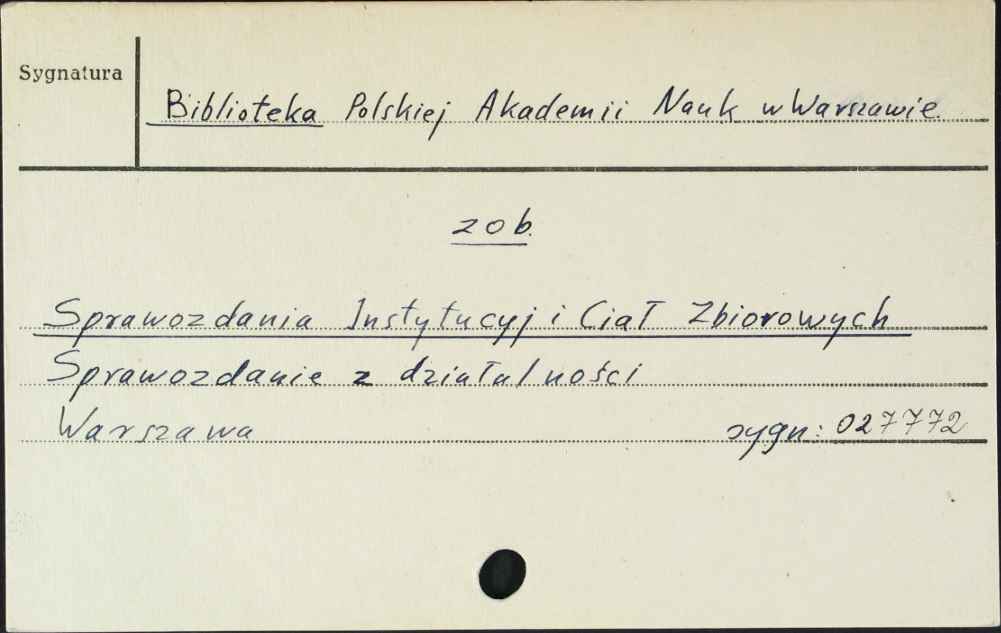 Sygnatura
Biblioteka Polskiej Akademii Nauk w Warszawie.
zob.
Sprawozdania Instytucyj i Ciał Zbiorowych
Sprawozdanie z działalności
Warszawa sygn: 027772